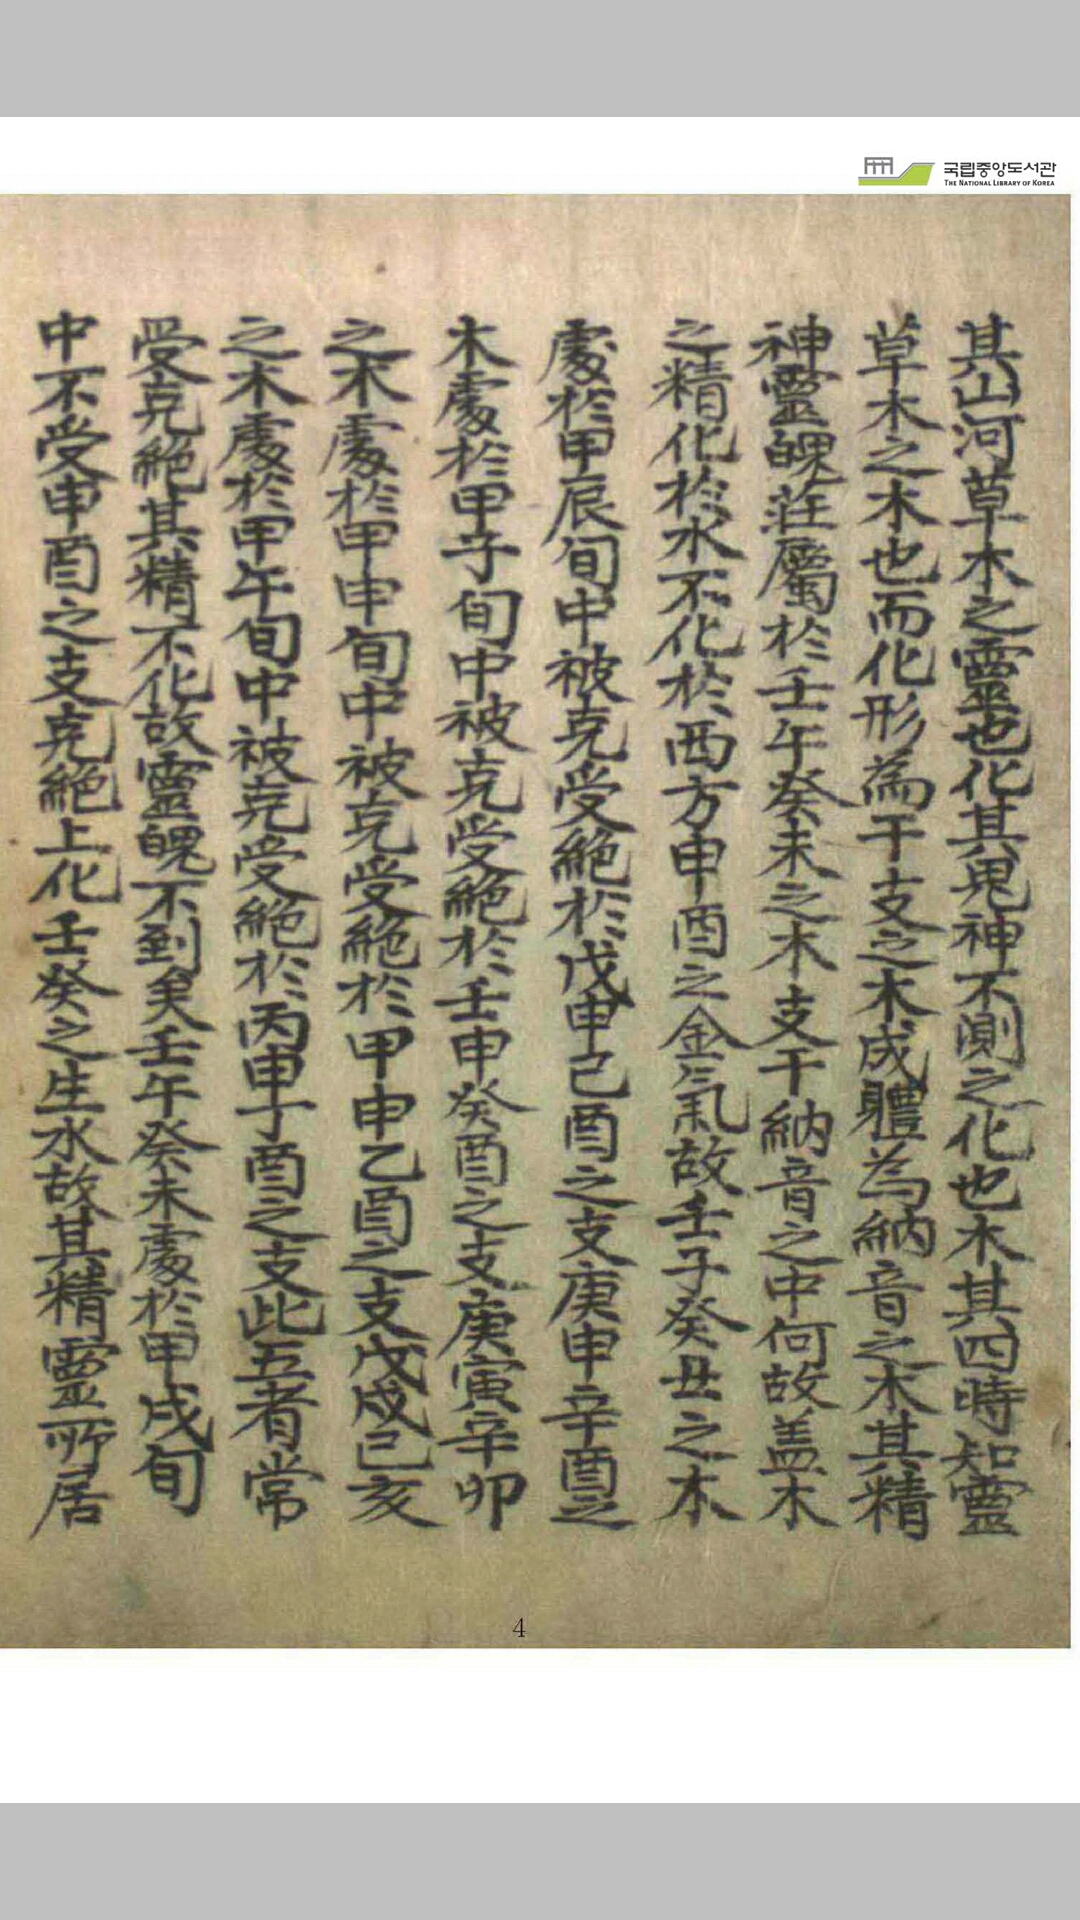 국립중앙도서관
THE NATIONAL LIBRARY OF KOREA
其山河草木之靈也化其鬼神不測之化也木其四時知靈
草木之木也而化形為干支之木成體為納音之木其精
神靈魄莊屬於壬午癸未之木支干納音之中何故盖木
之精化於水不化於西方申酉之金氣故壬子癸丑之木
處於甲辰旬中被克受絕於戊申己酉之支庚申辛酉之
木處於甲子旬中被克受絕於壬申癸酉之支庚寅辛卯
之木處於甲申旬中被克受絕於甲申乙酉之支戊戌己亥
之木處於甲午旬中被克受絕於丙申丁酉之支此五者常
受克絕其精不化故靈魄不到矣壬午癸未處於甲戌旬
中不受申酉之支克絕上化壬癸之生水故其精靈所居
4